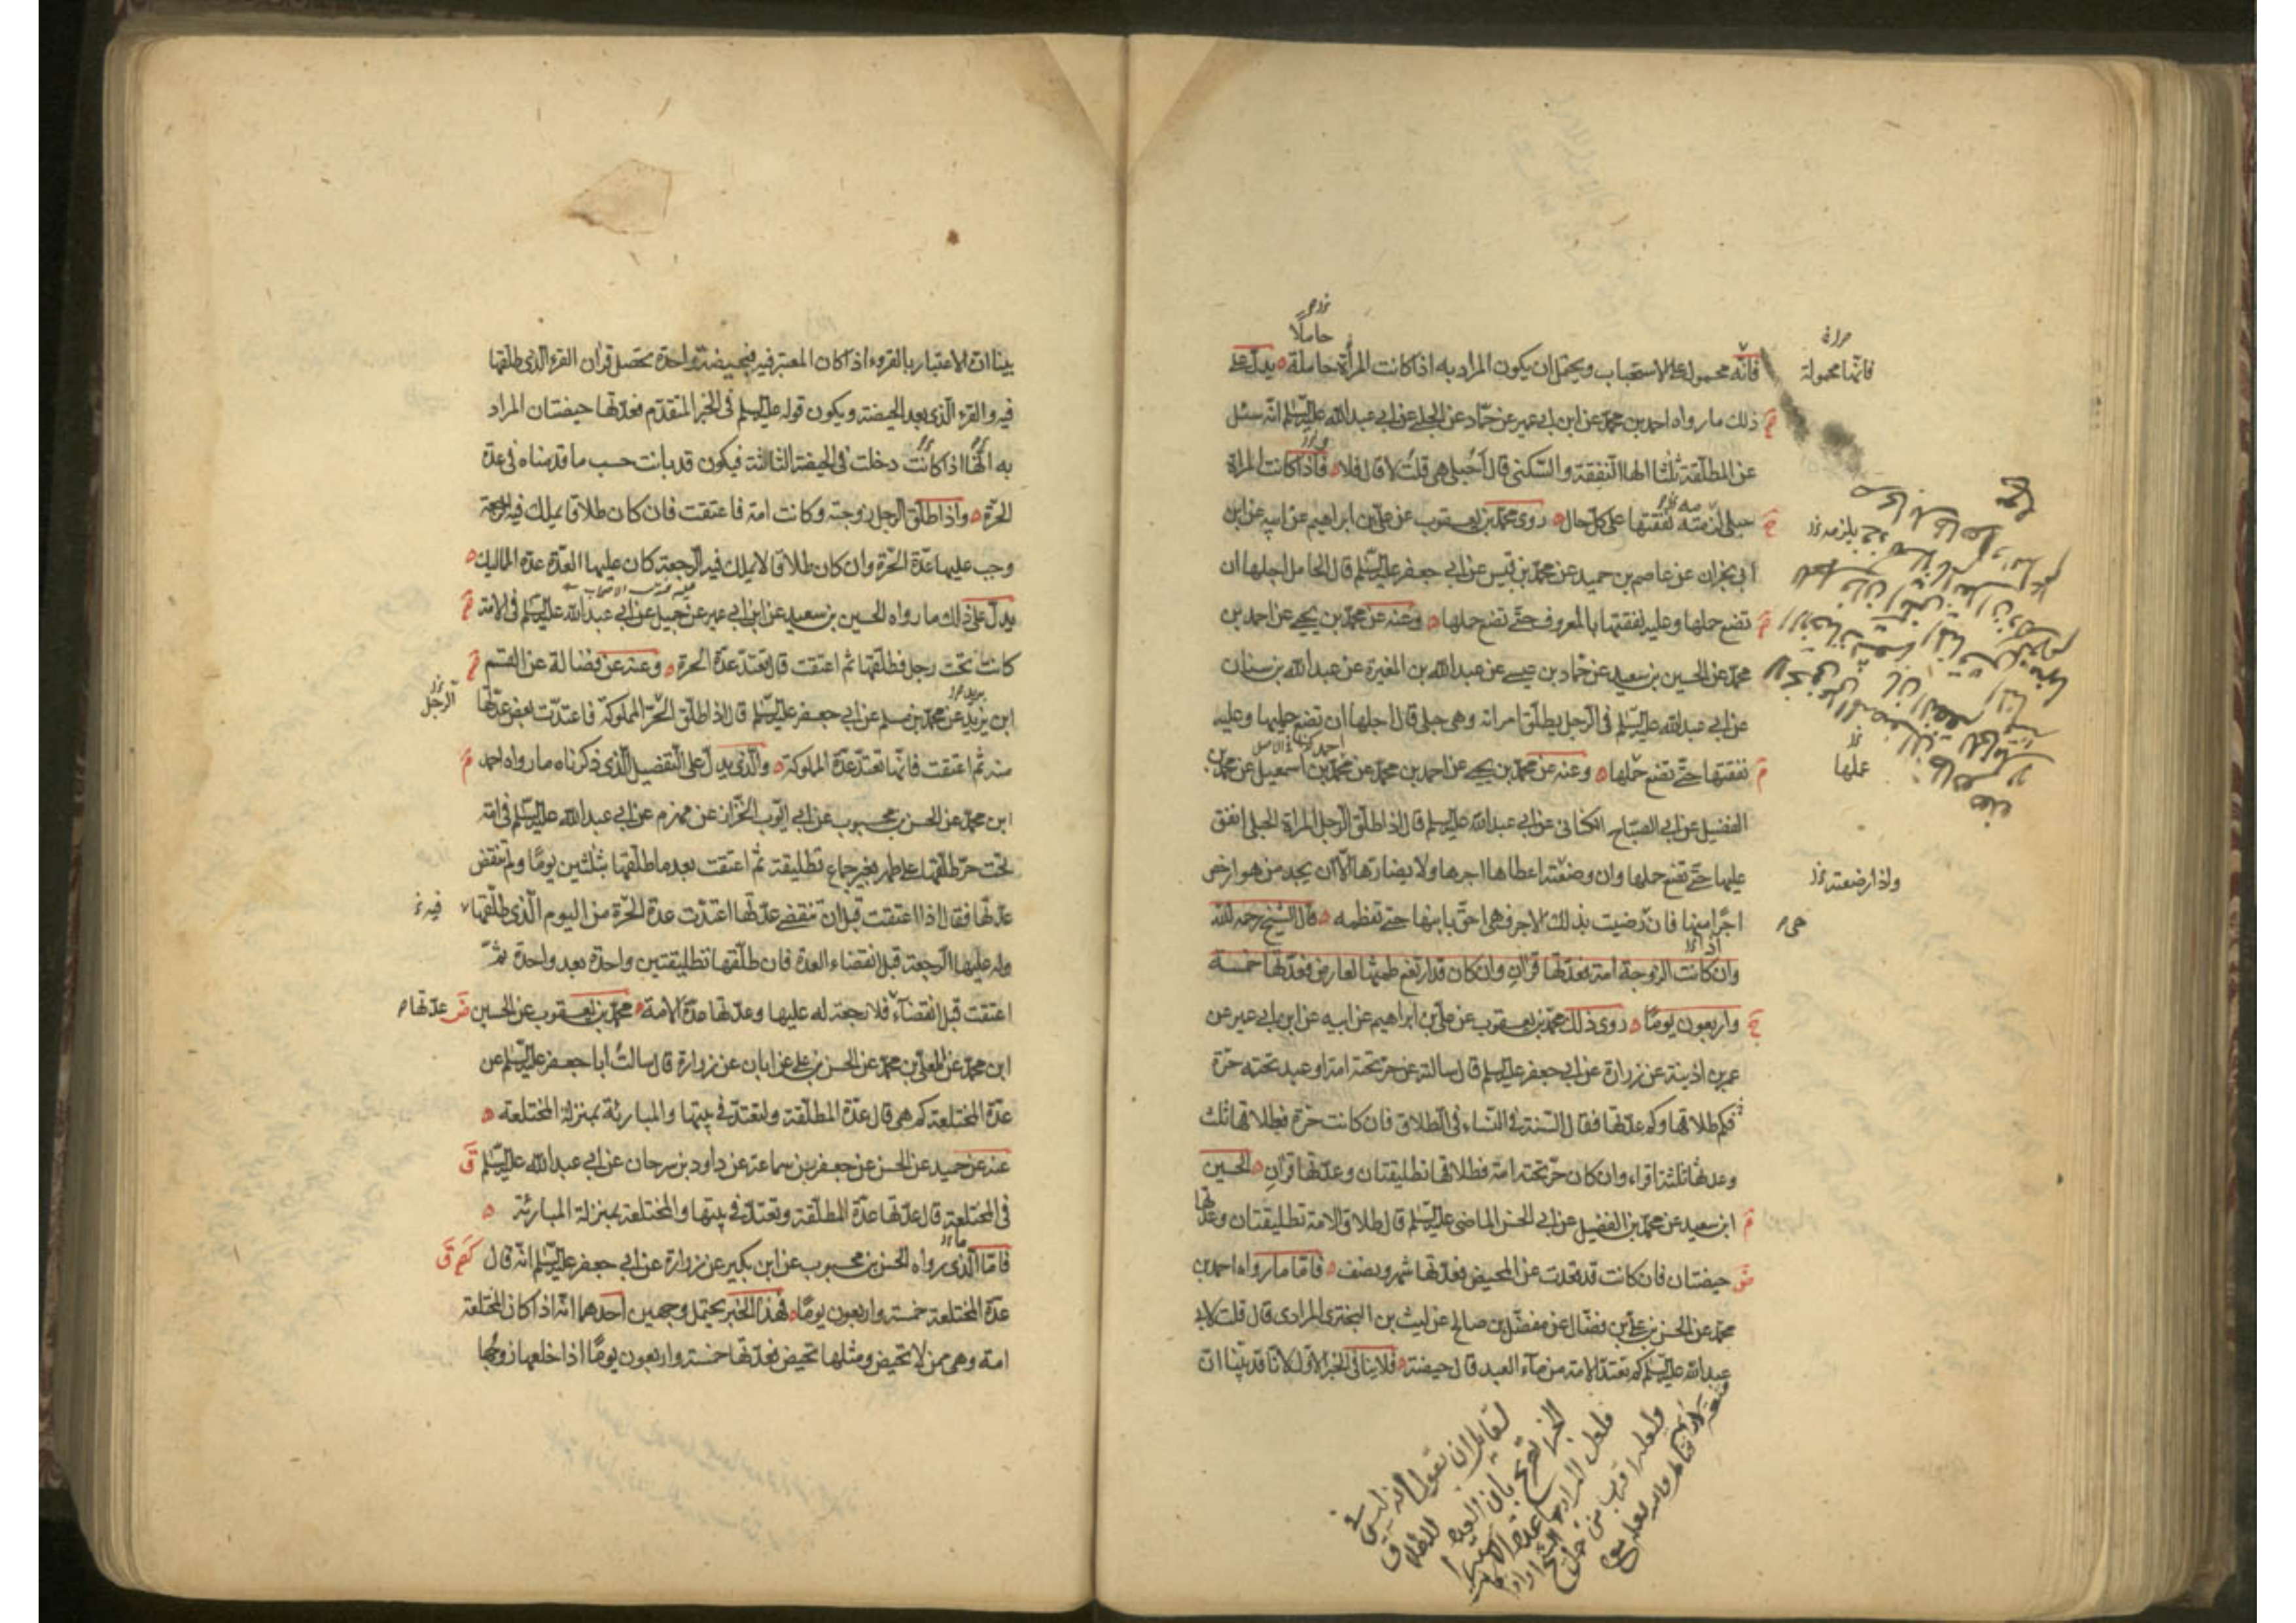 فانه محمول على الاستحباب ويحتمل ان يكون المراد به اذا كانت المرأة حاملة يدل على
ذلك ما رواه احمد بن محمد عن ابن ابي عمير عن حماد عن الحلبي عن ابي عبدالله عليه السلم انه سئل
عن المطلقة ثلثا الها النفقة والسكنى قال أحبلى هي قلت لا قال فلا فاذا كانت المراة
حبلى نفقتها على كل حال روى محمد بن يعقوب عن علي بن ابراهيم عن ابيه عن ابن
ابي نجران عن عاصم بن حميد عن محمد بن قيس عن ابي جعفر عليه السلم قال الحامل اجلها ان
تضع حملها وعليه نفقتها بالمعروف حتى تضع حملها وعنه عن محمد بن يحيى عن احمد بن
محمد عن الحسين بن سعيد عن حماد بن عيسى عن عبدالله بن المغيرة عن عبدالله بن سنان
عن ابي عبدالله عليه السلم في الرجل يطلق امراته وهي حبلى قال اجلها ان تضع حملها وعليه
نفقتها حتى تضع حملها وعنه عن محمد بن يحيى عن احمد بن محمد عن محمد بن اسمعيل عن محمد بن
الفضيل عن ابي الصباح الكناني عن ابي عبدالله عليه السلم قال اذا طلق الرجل المراة الحبلى انفق
عليها حتى تضع حملها وان وضعته اعطاها اجرها ولا يضارها الا ان يجد من هو ارخص
اجرا منها فان رضيت بذلك الاجر فهي احق بابنها حتى تفطمه قال الشيخ رحمه الله
وان كانت الزوجة امة فعدتها قرآن وان كان قد ارتفع طمثها لعارض فعدتها خمسة
واربعون يوما روى ذلك محمد بن يعقوب عن علي بن ابراهيم عن ابيه عن ابن ابي عمير عن
عمر بن اذينة عن زرارة عن ابي جعفر عليه السلم قال سالته عن حر تحته امة او عبد تحته حرة
فكم طلاقها وكم عدتها فقال السنة في النساء في الطلاق فان كانت حرة فطلاقها ثلث
وعدتها ثلثة اقراء وان كان حر تحته امة فطلاقها تطليقتان وعدتها قرآن الحسين
ابن سعيد عن محمد بن الفضيل عن ابي الحسن الماضي عليه السلم قال طلاق الامة تطليقتان وعدتها
حيضتان فان كانت قد قعدت عن المحيض فعدتها شهر ونصف فاما ما رواه احمد بن
محمد عن الحسن بن علي بن فضال عن مفضل بن صالح عن ليث بن البختري المرادي قال قلت لابي
عبدالله عليه السلم كم تعتد الامة من ماء العبد قال حيضة فلا ينافي الخبر الاول لانا قد بينا ان
حاملا
فانها محمولة
يلزمه
عملها
واذا ارضعته
لقائل ان يقول انه ليس في
الخبر تصريح بان العدة للطلاق
بينا ان الاعتبار بالقروء اذا كان المعتبر فيه فبحيضة واحدة تحصل قرآن القرء الذي طلقها
فيه والقرء الذي بعد الحيضة ويكون قوله عليه السلم في الخبر المتقدم فعدتها حيضتان المراد
به انها اذا كانت دخلت في الحيضة الثالثة فيكون قد بانت حسب ما قدمناه في عدة
الحرة واذا طلق الرجل زوجته وكانت امة فاعتقت فان كان طلاقا يملك فيه الرجعة
وجب عليها عدة الحرة وان كان طلاقا لا يملك فيه الرجعة كان عليها العدة عدة المماليك
يدل على ذلك ما رواه الحسين بن سعيد عن ابن ابي عمير عن جميل عن ابي عبدالله عليه السلم في الامة
كانت تحت رجل فطلقها ثم اعتقت قال تعتد عدة الحرة وعنه عن فضالة عن القسم
ابن يزيد عن محمد بن مسلم عن ابي جعفر عليه السلم قال اذا طلق الحر المملوكة فاعتدت بعض عدتها
منه ثم اعتقت فانها تعتد عدة المملوكة والذي يدل على التفصيل الذي ذكرناه ما رواه احمد
ابن محمد عن الحسن بن محبوب عن ابي ايوب الخزاز عن مهزم عن ابي عبدالله عليه السلم في امة
تحت حر طلقها على طهر بغير جماع تطليقة ثم اعتقت بعد ما طلقها بثلثين يوما ولم تنقض
عدتها فقال اذا اعتقت قبل ان تنقضي عدتها اعتدت عدة الحرة من اليوم الذي طلقها
وله عليها الرجعة قبل انقضاء العدة فان طلقها تطليقتين واحدة بعد واحدة ثم
اعتقت قبل انقضاء فلا رجعة له عليها وعدتها عدة الامة محمد بن يعقوب عن الحسين
ابن محمد عن المعلى بن محمد عن الحسن بن علي عن ابان عن زرارة قال سالت ابا جعفر عليه السلم عن
عدة المختلعة كم هي قال عدة المطلقة ولتعتد في بيتها والمبارئة بمنزلة المختلعة
عنه عن حميد عن الحسن عن جعفر بن سماعة عن داود بن سرحان عن ابي عبدالله عليه السلم
في المختلعة قال عدتها عدة المطلقة وتعتد في بيتها والمختلعة بمنزلة المبارئة
فاما الذي رواه الحسن بن محبوب عن ابن بكير عن زرارة عن ابي جعفر عليه السلم انه قال
عدة المختلعة خمسة واربعون يوما فهذا الخبر يحتمل وجهين احدهما انه اذا كان المختلعة
امة وهي ممن لا تحيض ومثلها تحيض فعدتها خمسة واربعون يوما اذا خلعها زوجها
الرجل
فيه
عدتها